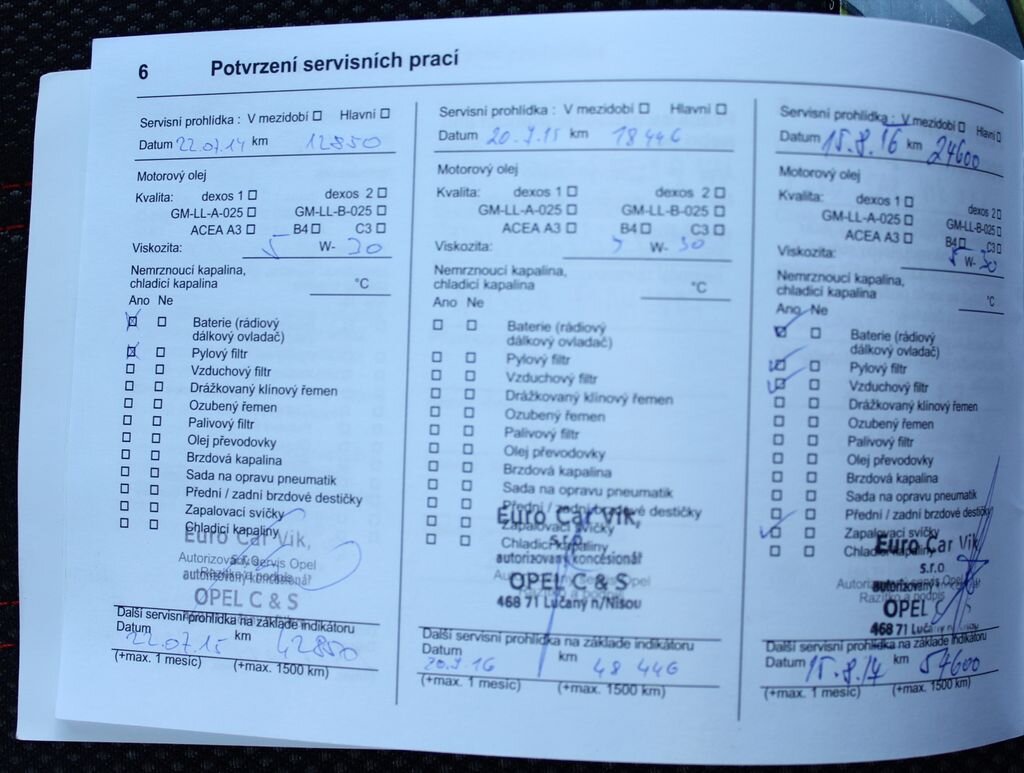 6 Potvrzení servisních prací
Servisní prohlídka : V mezidobí ☐ Hlavní ☐
Datum 22.07.14 km 12850
Motorový olej
Kvalita: dexos 1 ☐ dexos 2 ☐
GM-LL-A-025 ☐ GM-LL-B-025 ☐
ACEA A3 ☐ B4 ☐ C3 ☐
Viskozita: 5 W- 30
Nemrznoucí kapalina,
chladicí kapalina °C
Ano Ne
Baterie (rádiový
dálkový ovladač)
Pylový filtr
Vzduchový filtr
Drážkovaný klínový řemen
Ozubený řemen
Palivový filtr
Olej převodovky
Brzdová kapalina
Sada na opravu pneumatik
Přední / zadní brzdové destičky
Zapalovací svíčky
Chladicí kapaliny
Euro Car Vik,
s.r.o
Autorizovaný servis Opel
autorizovaný koncesionář
Razítko a podpis
OPEL C & S
Další servisní prohlídka na základě indikátoru
Datum 22.07.15 km 42850
(+max. 1 měsíc) (+max. 1500 km)
Servisní prohlídka : V mezidobí ☐ Hlavní ☐
Datum 20.7.15 km 18446
Motorový olej
Kvalita: dexos 1 ☐ dexos 2 ☐
GM-LL-A-025 ☐ GM-LL-B-025 ☐
ACEA A3 ☐ B4 ☐ C3 ☐
Viskozita: 5 W- 30
Nemrznoucí kapalina,
chladicí kapalina °C
Ano Ne
Baterie (rádiový
dálkový ovladač)
Pylový filtr
Vzduchový filtr
Drážkovaný klínový řemen
Ozubený řemen
Palivový filtr
Olej převodovky
Brzdová kapalina
Sada na opravu pneumatik
Přední / zadní brzdové destičky
Euro Car Vik,
Zapalovací svíčky
s.r.o
Chladicí kapaliny
autorizovaný koncesionář
Autorizovaný servis Opel
OPEL C & S
Razítko a podpis
468 71 Lučany n/Nisou
Další servisní prohlídka na základě indikátoru
Datum 20.7.16 km 48446
(+max. 1 měsíc) (+max. 1500 km)
Servisní prohlídka : V mezidobí ☐ Hlavní ☐
Datum 15.8.16 km 24600
Motorový olej
Kvalita: dexos 1 ☐ dexos 2 ☐
GM-LL-A-025 ☐ GM-LL-B-025 ☐
ACEA A3 ☐ B4 ☐ C3 ☐
Viskozita: 5 W- 30
Nemrznoucí kapalina,
chladicí kapalina °C
Ano Ne
Baterie (rádiový
dálkový ovladač)
Pylový filtr
Vzduchový filtr
Drážkovaný klínový řemen
Ozubený řemen
Palivový filtr
Olej převodovky
Brzdová kapalina
Sada na opravu pneumatik
Přední / zadní brzdové destičky
Zapalovací svíčky
Chladicí kapaliny
Euro Car Vik
s.r.o
Autorizovaný servis Opel
Razítko a podpis
OPEL C
468 71 Lučany n/Nisou
Další servisní prohlídka na základě indikátoru
Datum 15.8.17 km 54600
(+max. 1 měsíc) (+max. 1500 km)